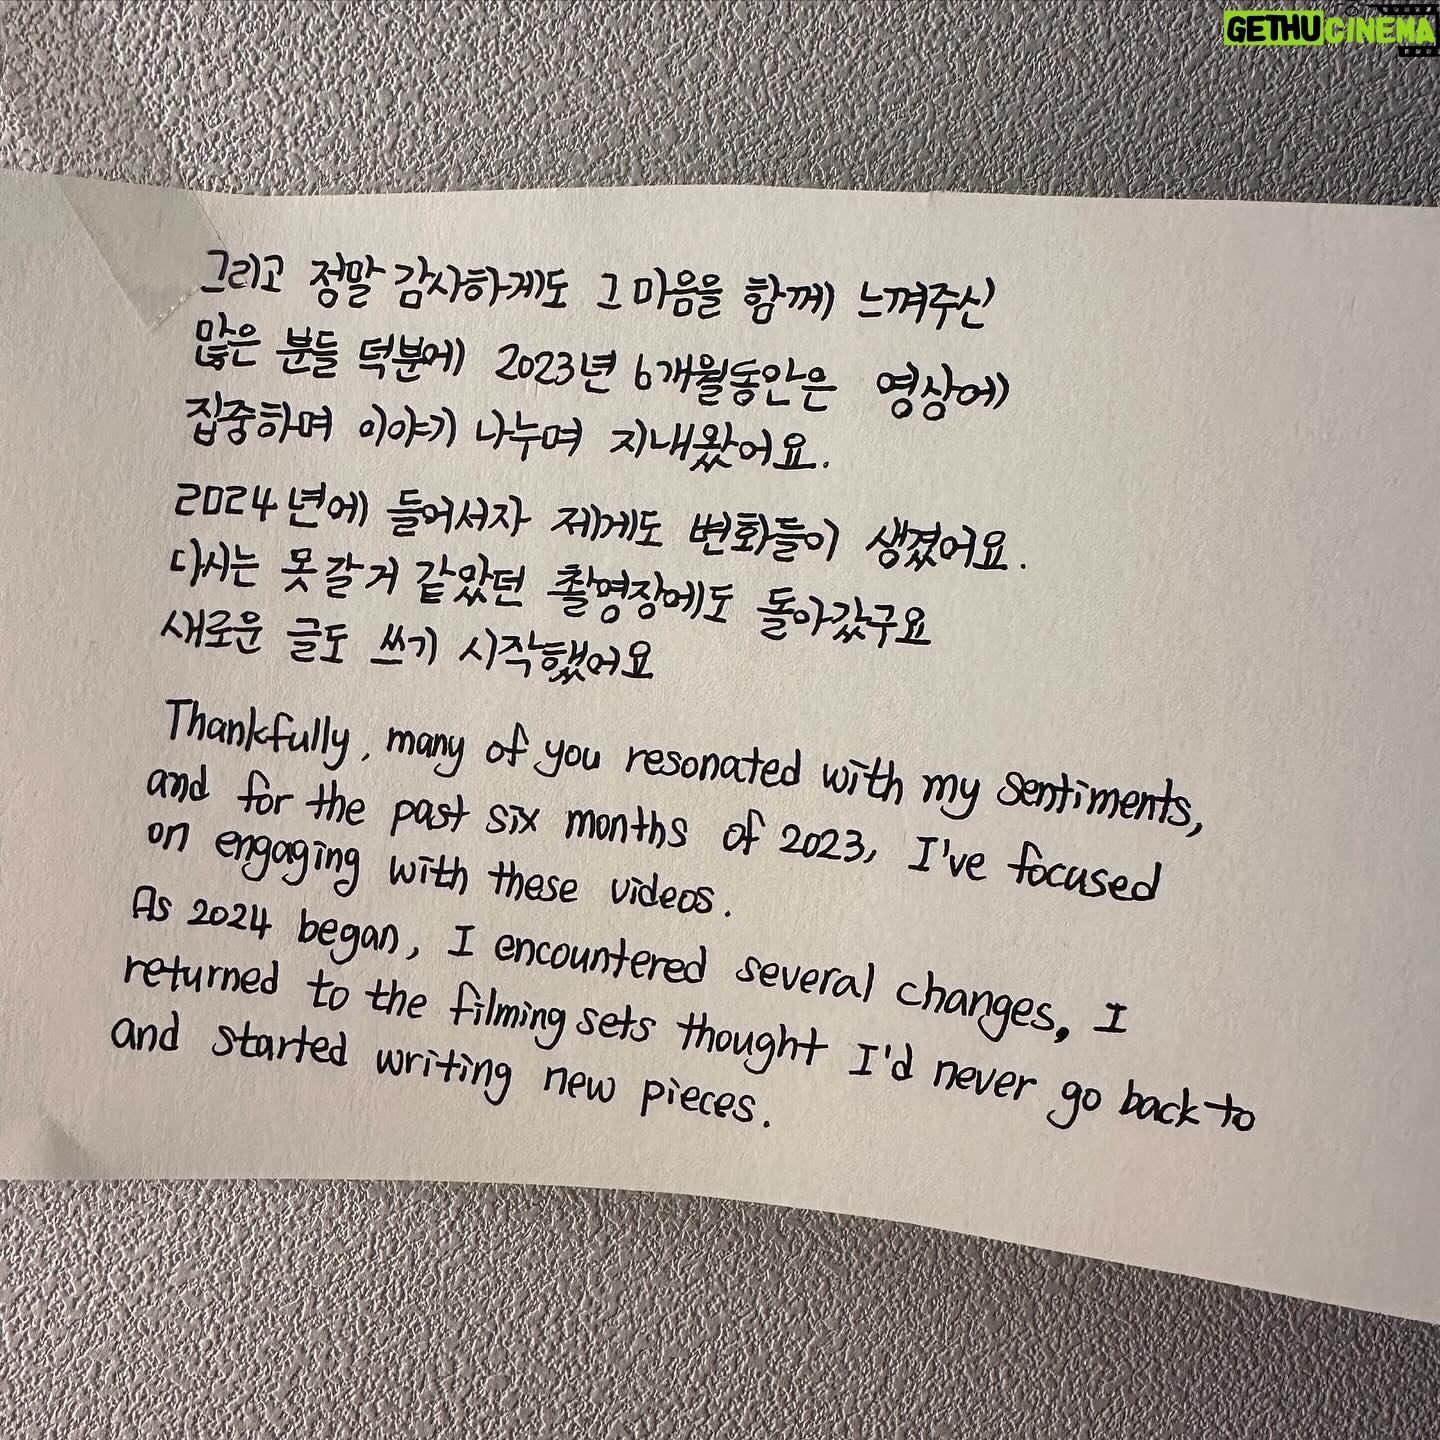 GETHUCINEMA
그리고 정말 감사하게도 그 마음을 함께 느껴주신
많은 분들 덕분에 2023년 6개월동안은 영상에
집중하며 이야기 나누며 지내왔어요.
2024년에 들어서자 제게도 변화들이 생겼어요.
다시는 못갈거 같았던 촬영장에도 돌아갔구요
새로운 글도 쓰기 시작했어요
Thankfully, many of you resonated with my sentiments,
and for the past six months of 2023, I've focused
on engaging with these videos.
As 2024 began, I encountered several changes. I
returned to the filming sets thought I'd never go back to
and started writing new pieces.